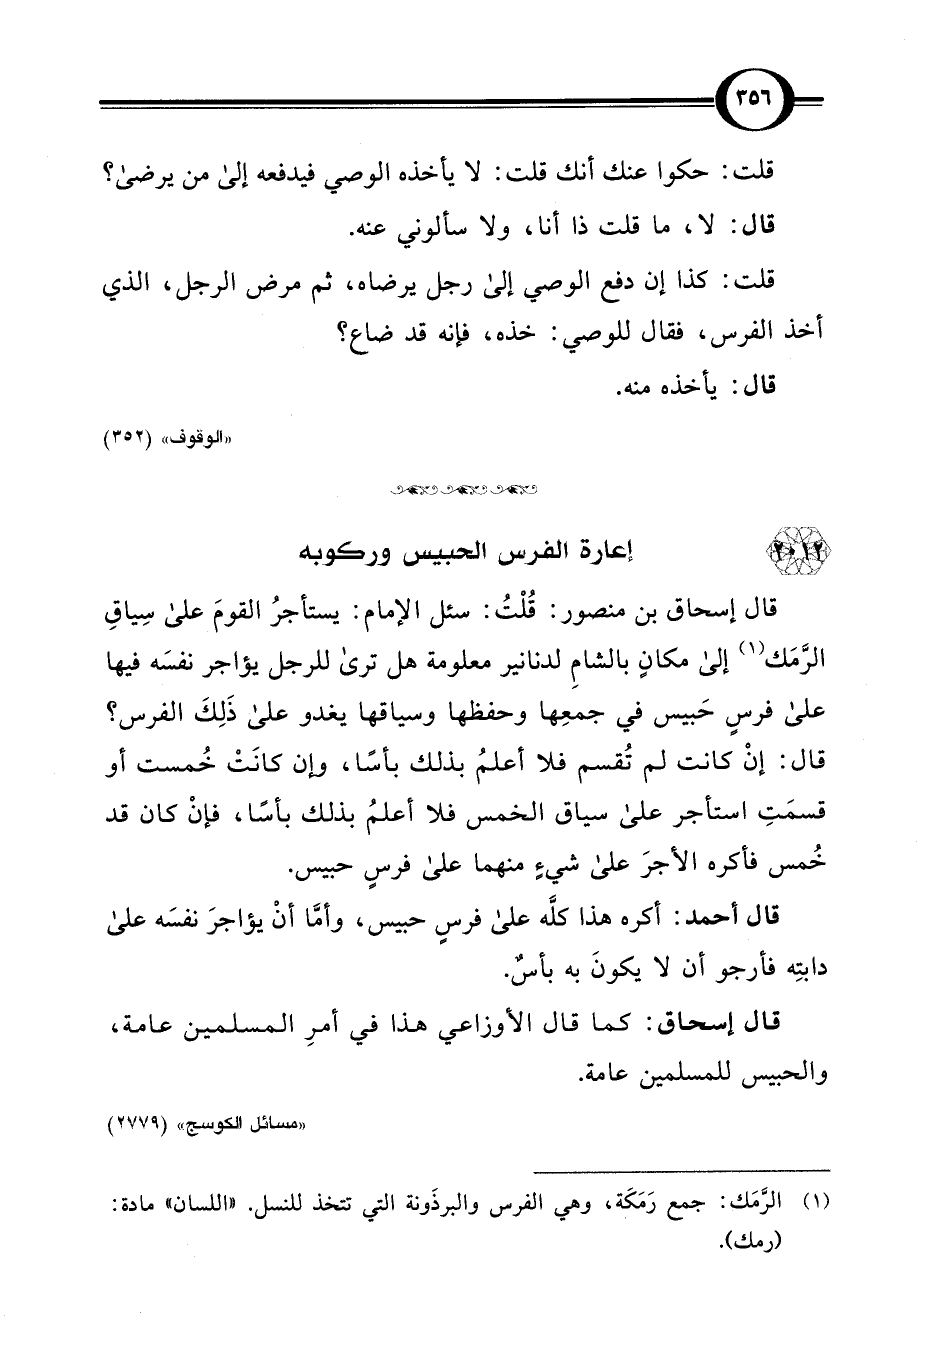 ٣٥٦
قلت: حكوا عنك أنك قلت: لا يأخذه الوصي فيدفعه إلىٰ من يرضىٰ؟
قال: لا، ما قلت ذا أنا، ولا سألوني عنه.
قلت: كذا إن دفع الوصي إلىٰ رجل يرضاه، ثم مرض الرجل، الذي
أخذ الفرس، فقال للوصي: خذه، فإنه قد ضاع؟
قال: يأخذه منه.
«الوقوف» (٣٥٢)
٢٠١٢ إعارة الفرس الحبيس وركوبه
قال إسحاق بن منصور: قُلْتُ: سئل الإمام: يستأجرُ القومَ علىٰ سِياقِ
الرَّمَك(١) إلىٰ مكانٍ بالشامِ لدنانير معلومة هل ترىٰ للرجل يؤاجر نفسَه فيها
علىٰ فرسٍ حَبيس في جمعِها وحفظها وسياقها يغدو علىٰ ذَلِكَ الفرس؟
قال: إنْ كانت لم تُقسم فلا أعلمُ بذلك بأسًا، وإن كانَتْ خُمست أو
قسمَتِ استأجر علىٰ سياق الخمس فلا أعلمُ بذلك بأسًا، فإنْ كان قد
خُمس فأكره الأجرَ علىٰ شيءٍ منهما علىٰ فرسٍ حبيس.
قال أحمد: أكره هذا كلَّه علىٰ فرسٍ حبيس، وأمَّا أنْ يؤاجرَ نفسَه علىٰ
دابتِه فأرجو أن لا يكونَ به بأسٌ.
قال إسحاق: كما قال الأوزاعي هذا في أمرِ المسلمين عامة،
والحبيس للمسلمين عامة.
«مسائل الكوسج» (٢٧٧٩)
(١) الرَّمَك: جمع رَمَكَة، وهي الفرس والبرذَونة التي تتخذ للنسل. «اللسان» مادة:
(رمك).